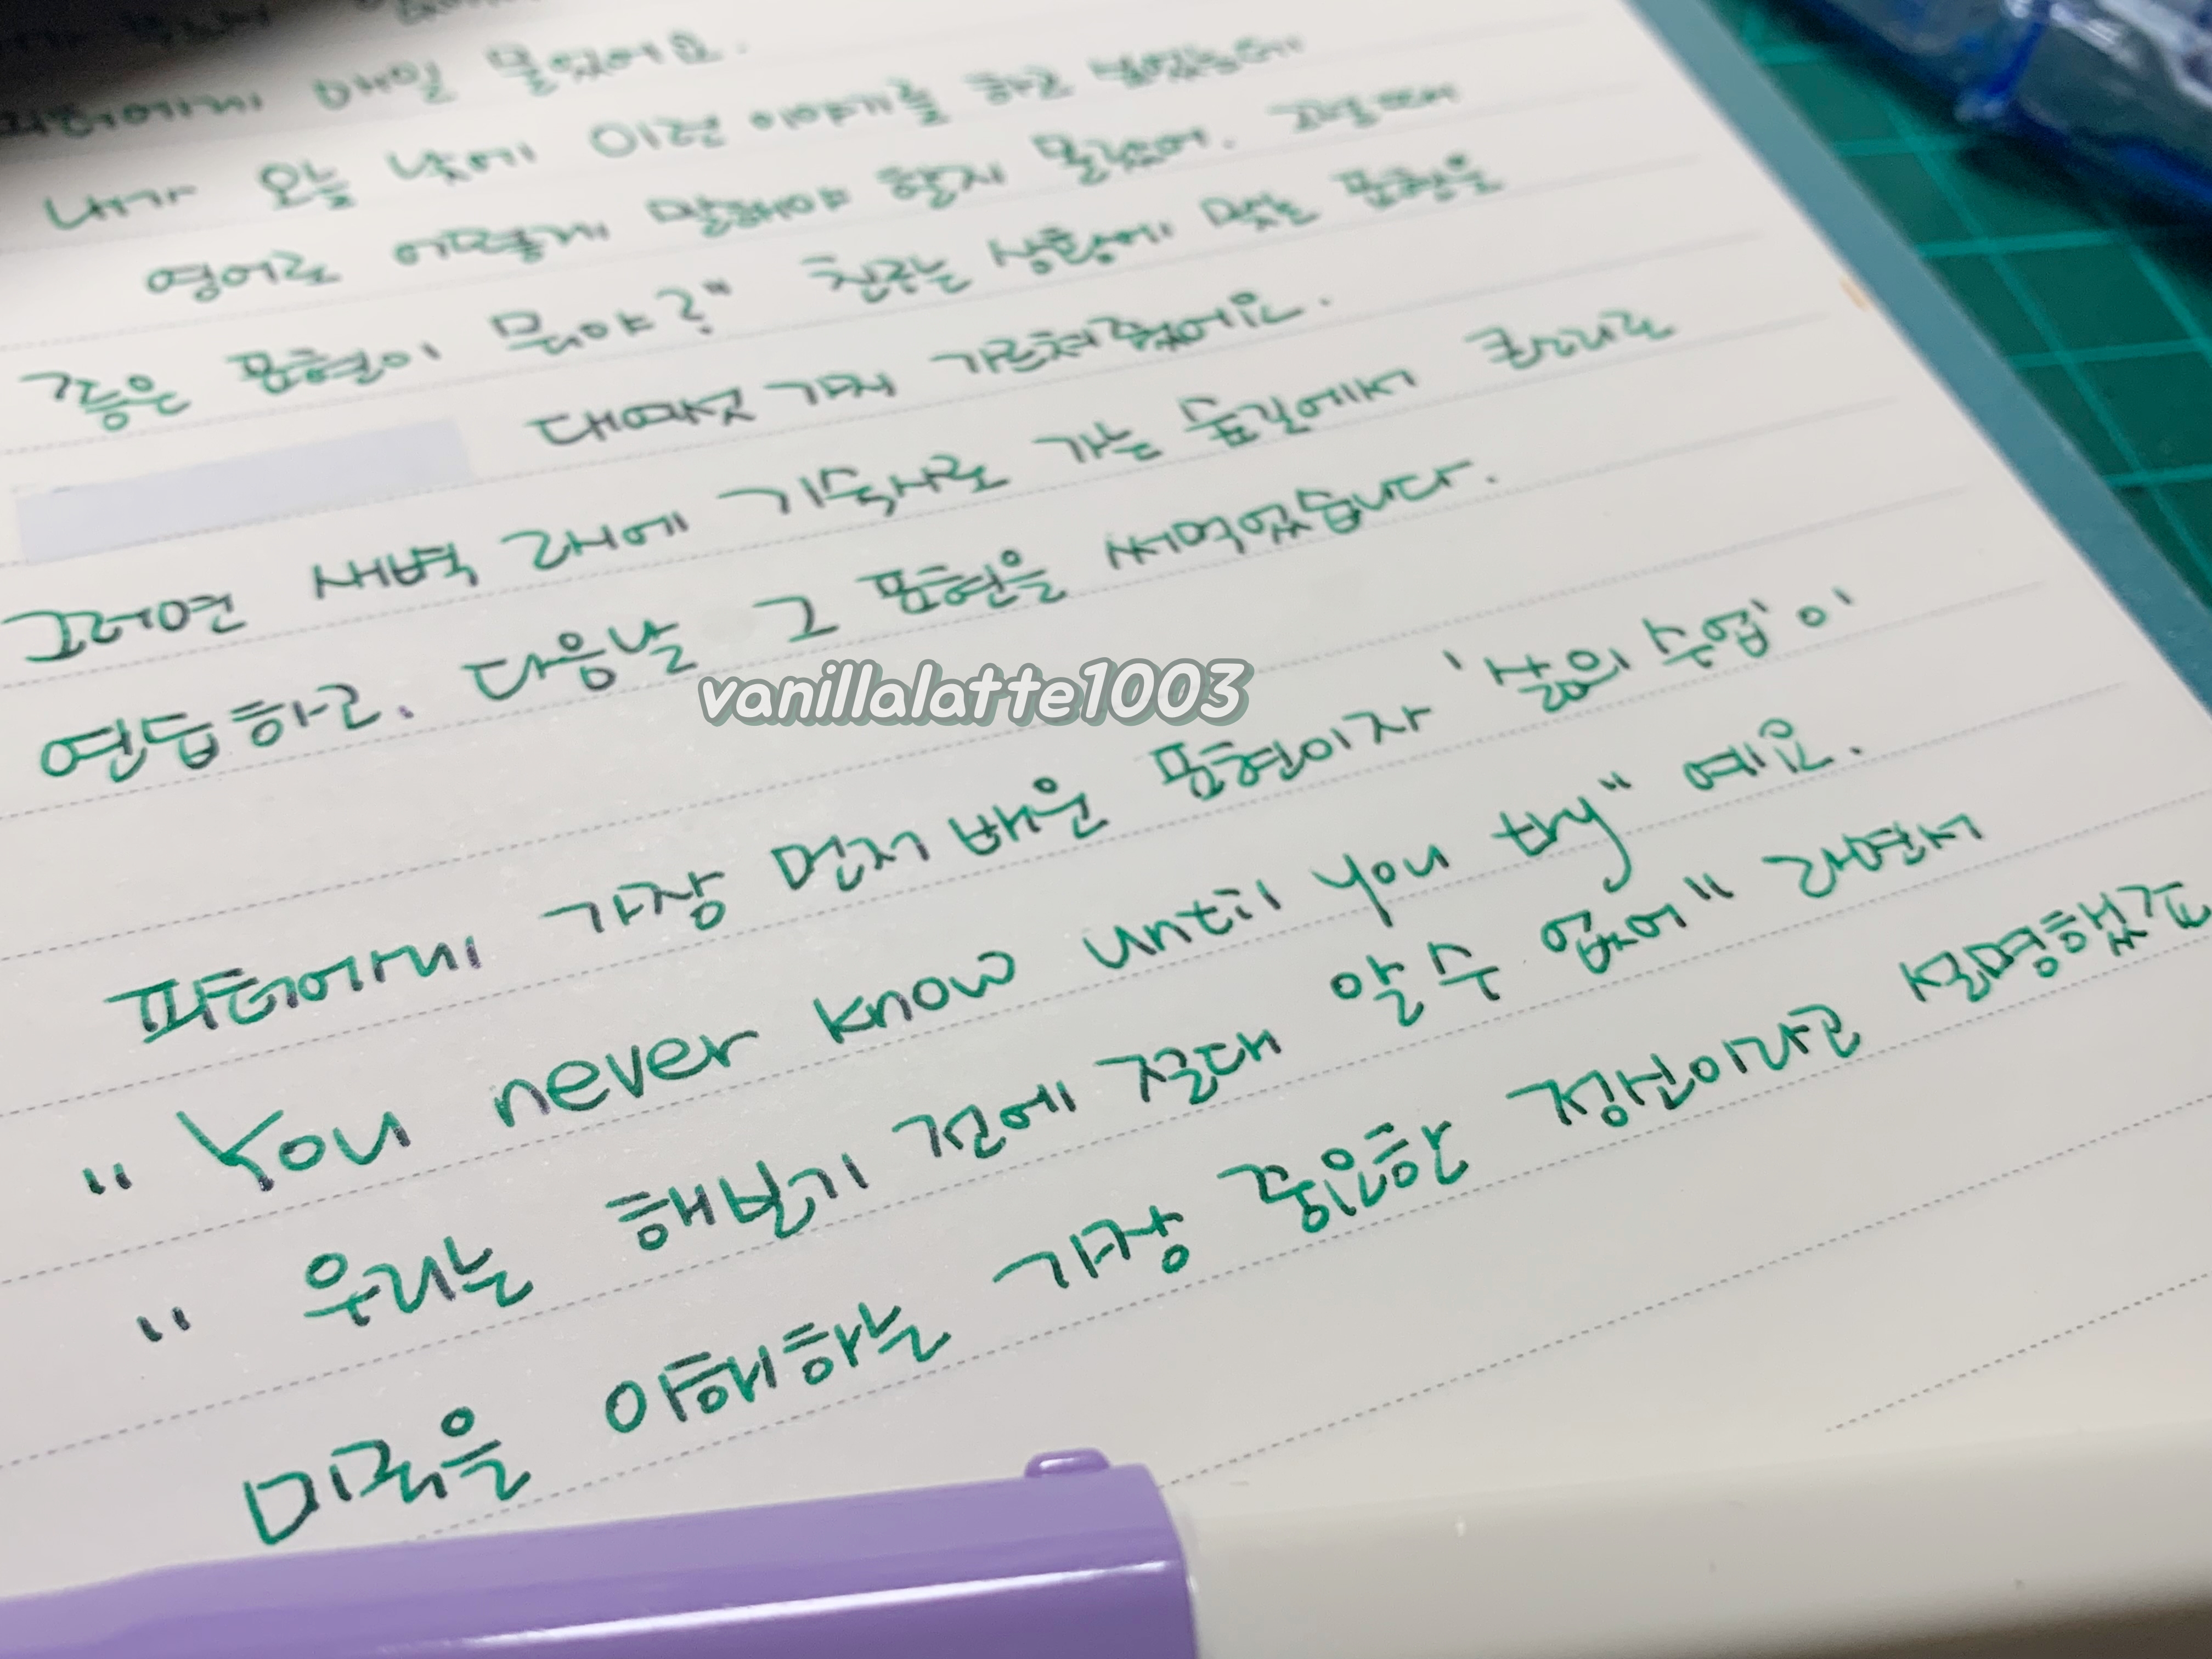 피터에게 매일 물었어요.
내가 오늘 낮에 이런 이야기를 하고 싶었는데
영어로 어떻게 말해야 할지 몰랐어. 그럴 때
좋은 표현이 뭐야?" 친구는 상황에 맞는 표현을
대여섯 가지 가르쳐줬어요.
그러면 새벽 2시에 기숙사로 가는 숲길에서 큰소리로
연습하고, 다음날 그 표현을 써먹었습니다.
vanillalatte1003
피터에게 가장 먼저 배운 표현이자 '삶의 수업'이
"You never know until you try" 예요.
"우리는 해보기 전에 절대 알 수 없어" 라면서
미국을 이해하는 가장 중요한 정신이라고 설명했죠